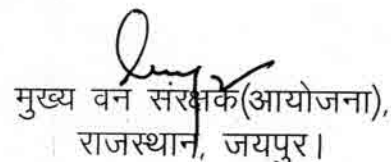 मुख्य वन संरक्षक(आयोजना),
राजस्थान, जयपुर।